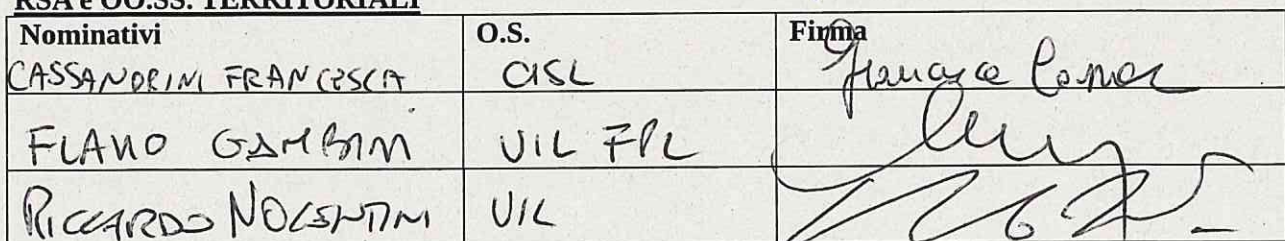 RSA e OO.SS. TERRITORIALI
Nominativi O.S. Firma
CASSANDRINI FRANCESCA CISL Francesca
FLAVIO GAMBINI UIL FPL
RICCARDO NOCENTINI UIL